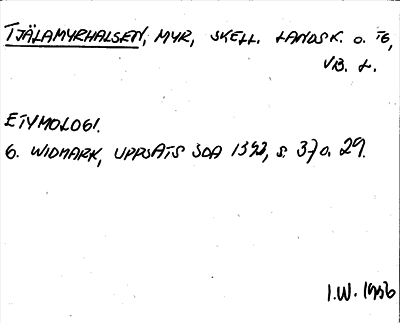 TJÄLAMYRHALSEN, MYR, SKELL. LANDSK. O. TG,
VB. L.
ETYMOLOGI.
G. WIDMARK, UPPSATS SOA 1393, S. 37 O. 29.
I.W. 1956